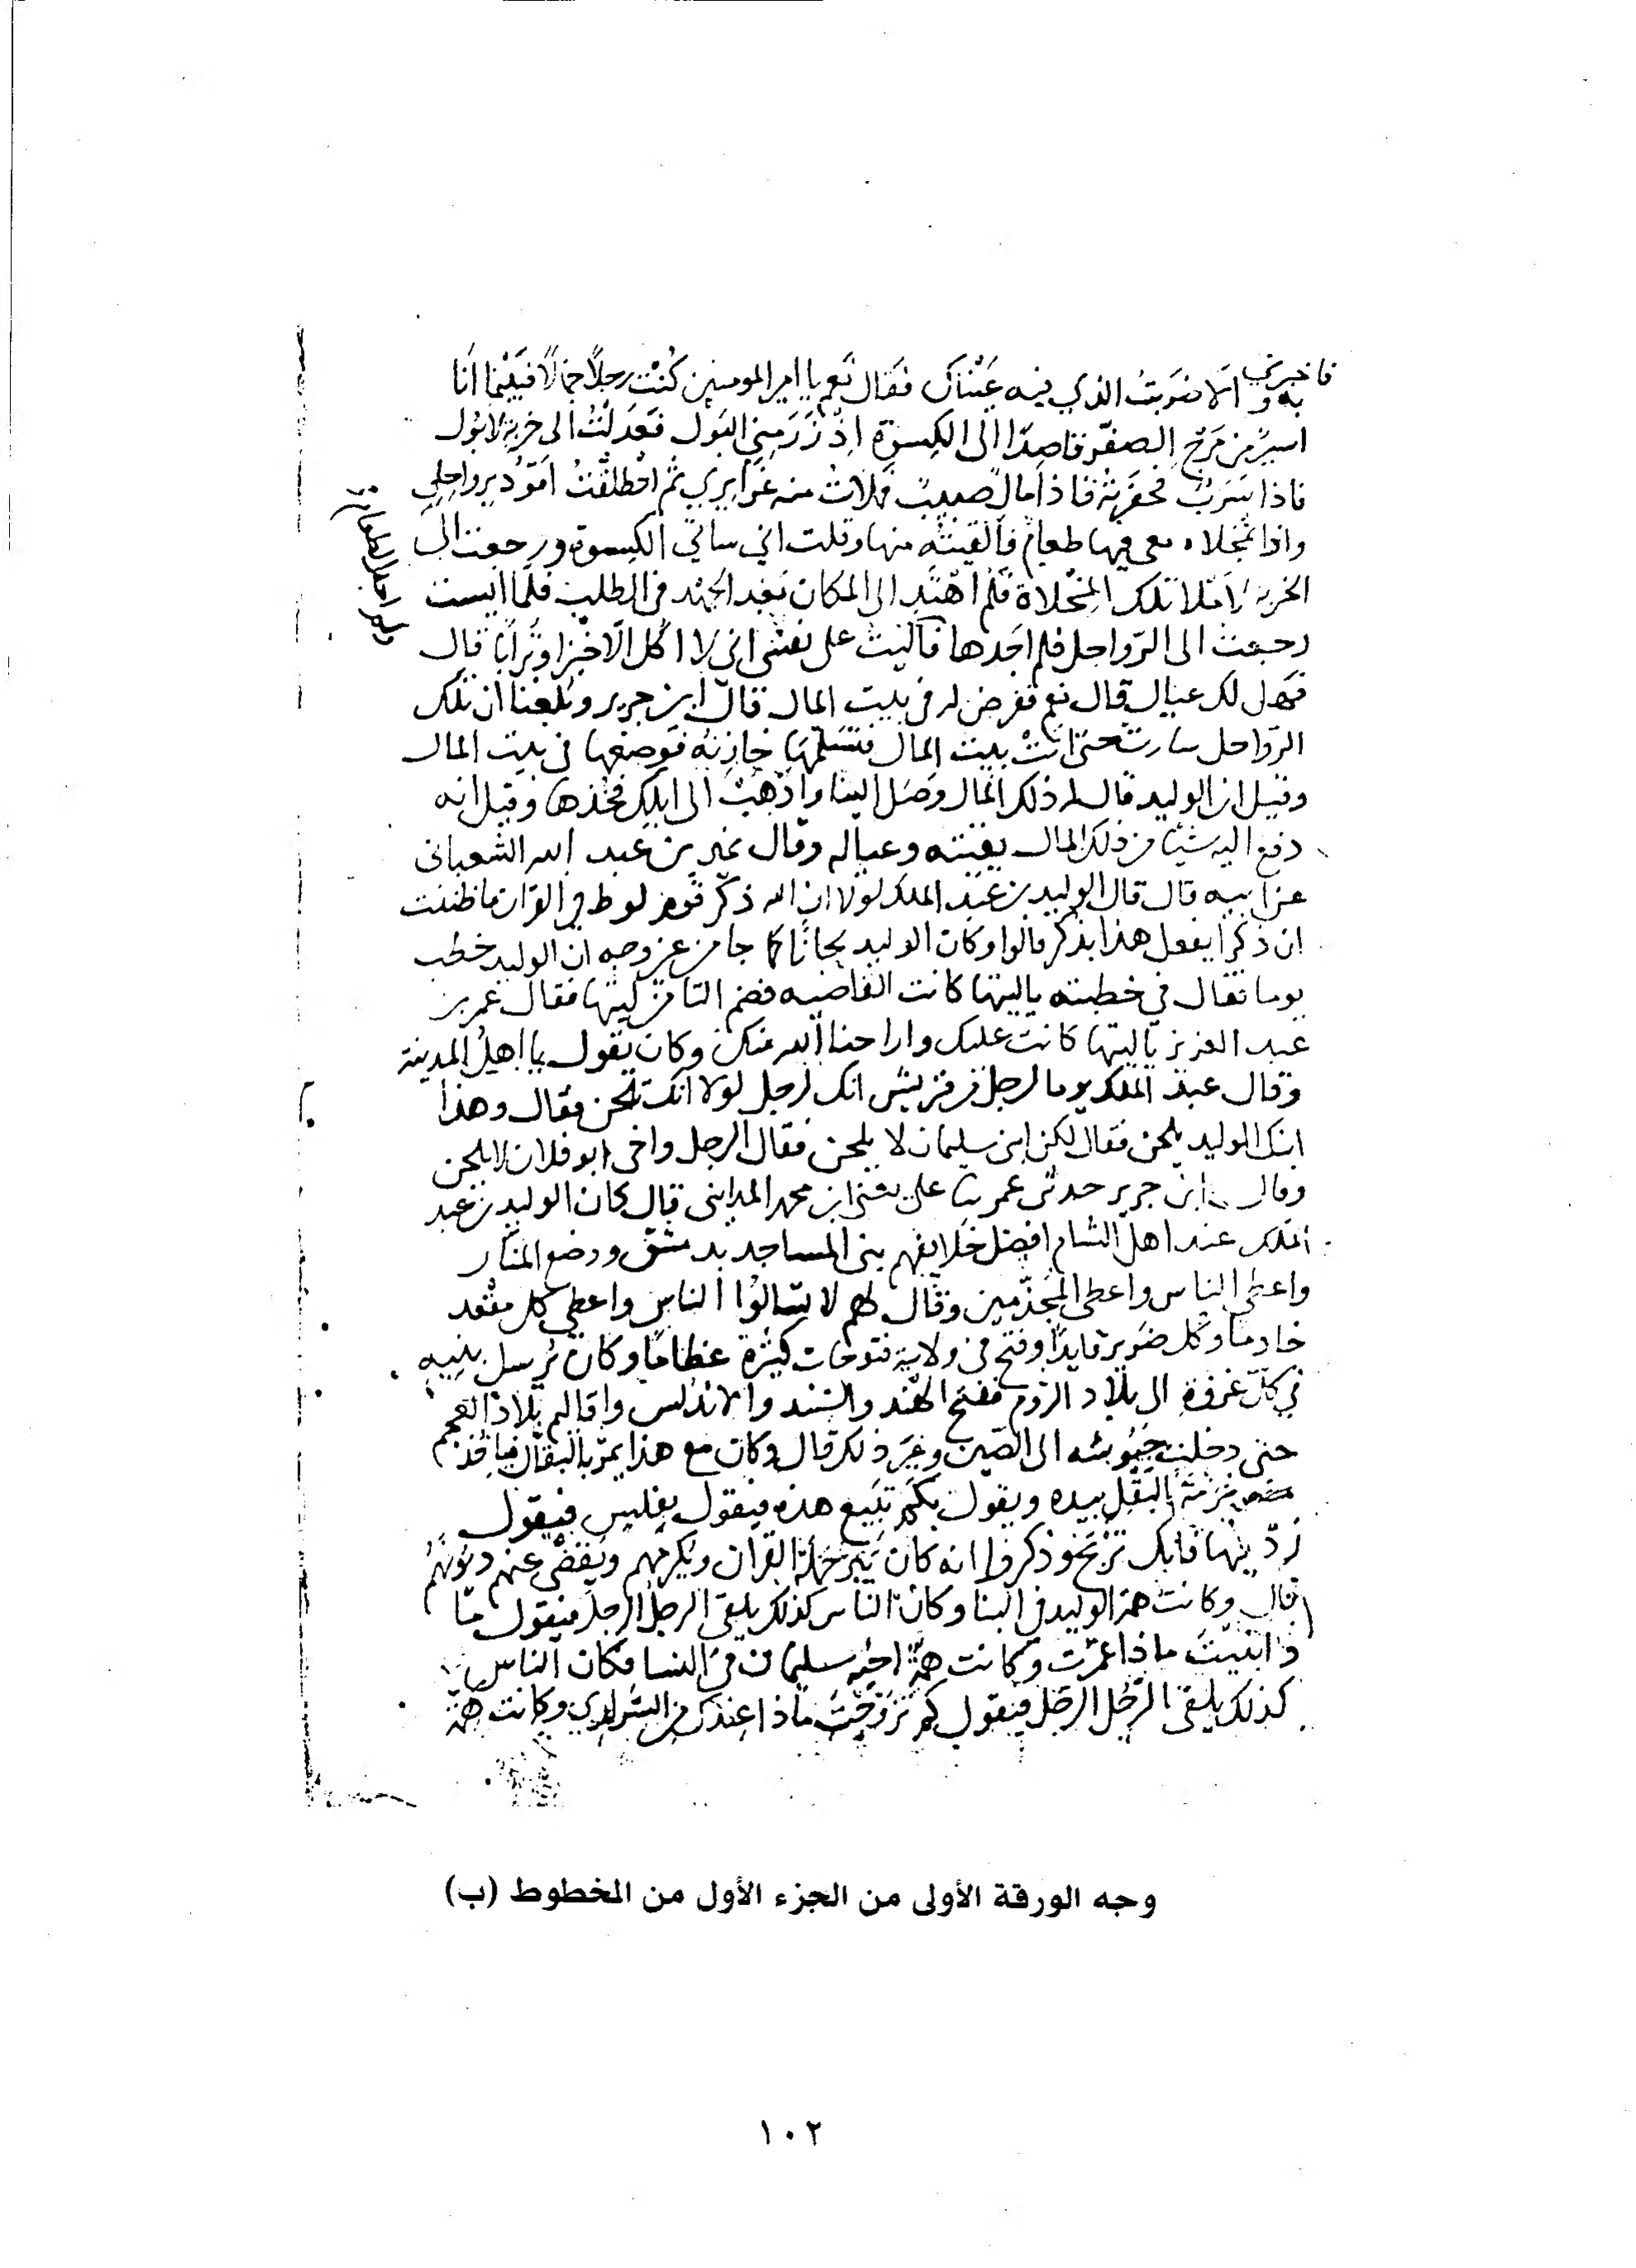 فاخبرني
به والا ضربت الذي فيه عيناك فقال نعم يا امير المومنين كُنْت رجلاً جمالاً فَبَيْنما أنا
اسيرُ من مَرْج الصفّر قاصدًا الى الكِسوَة اذْ زَرَمني البَول فَعَدَلتُ الى خربة لابُول
فاذا سَرَبٌ فحفرته فاذا مال صبيب فملاتُ منه غَرايري ثم انطلقتُ اقوُد برواحلي
واذا بمخلاه معي فيها طعام فألقيتُه منها وقلت اني ساتي الكسوة ورجعت الى
الخربة لأملا تلك المِخلاة فلم اهتَدِ الى المكان بَعْد الجَهْد في الطلب فلمّا ايست
رجعت الى الرّواحل فلم اجدها فآليت على نفسي اني لا اكُل الّا خبزًا وتُرابًا قال
فهل لك عيال قال نعم ففرض له في بيت المال قال ابن جرير وبَلَغنا ان تلك
الرّواحل سارت حتى اتَتْ بيت المال فتسلّمها خازنُه فوضعها في بيت المال
وقيل ان الوليد قال له ذلك المال وَصَل الينا واذهَبْ الى ابلِك فخُذها وقيل انه
دفع اليه شيئا من ذلك المال يقيته وعياله وقال نمير بن عبد الله الشعباني
عن ابيه قال قال الوليد بن عبد الملك لولا ان الله ذكر قوم لوط في القران ما ظننت
ان ذكرًا يفعل هذا بذكر قالوا وكان الوليد لحانًا كما جا من غير وجه ان الوليد خطب
يوما فقال في خطبته ياليتها كانت القاضيه فضم التا من ليتها فقال عمر بن
عبد العزيز ياليتها كانت عليك واراحنا الله منك وكان يقول يا اهلُ المدينة
وقال عبد الملك يوما لرجل من قريش انك لرجل لولا انك تلحن فقال وهذا
ابنك الوليد يلحن فقال لكن ابني سليمان لا يلحن فقال الرجل واخي ابو فلان لا يلحن
وقال ابن جرير حدثني عمر ثنا علي يعني ابن محمد المدايني قال كان الوليد بن عبد
الملك عند اهل الشام افضل خلايفهم بنى المساجد بدمشق ووضع المنار
واعطى الناس واعطى المجَذّمين وقال لهم لا تسالوُا الناس واعطى كل مقعد
خادمًا وكل ضرير قايدًا وفتح في ولايته فتوحات كثيرة عظامًا وكان يُرسل بَنيه
في كلّ غزوة الى بلاد الرّوم ففتح الهَند والسّند والاندلس واقاليم بلاد العجم
حتى دخلت جُيوشه الى الصّين وغير ذلك قال وكان مع هذا يمرّ بالبقّال فياخذ
حُزمَة البَقْل بيده ويقول بكَم تبيع هذه فيقول بفلس فيقول
زد فيها فانك تربَح وذكروا انه كان يَبرّ حَمَلة القران ويُكرمهم ويَقضي عنهم ديُونهُم
قال وكانت همّة الوليد في البنا وكان الناس كذلك يلقى الرجلُ الرجلَ فيقول ما
ذا بَنيتَ ماذا عَمّرت وكانت همّة اخيه سليمان في النسا فكان الناس
كذلك يلقى الرّجل الرّجل فيقول كم تزوّجتَ ماذا عندك من السّراري وكانت همّة
وجه الورقة الأولى من الجزء الأول من المخطوط (ب)
١٠٢